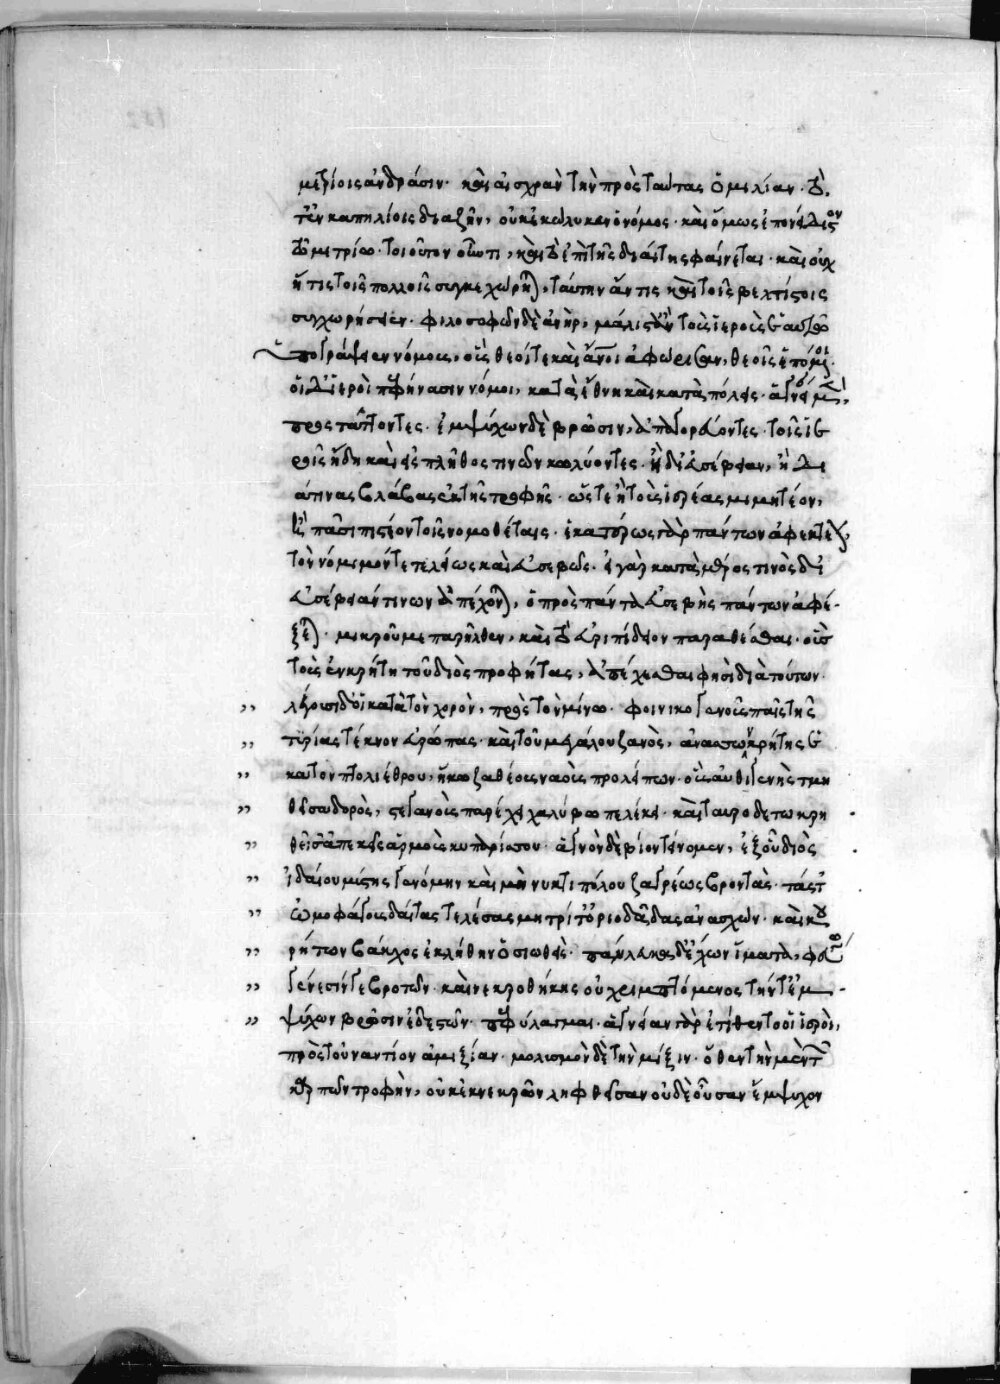 μετρίοις ἀνδράσιν· καὶ αἰσχρὰν τὴν πρὸς ταύτας ὁμιλίαν· τὸ
τ' ἐν καπηλίοις διαζῆν, οὐ κεκώλυκεν ὁ νόμος· καὶ ὅμως ἐπονείδιστον
τῷ μετρίω· τοιοῦτον οὖν τι, καὶ τὸ ἐπὶ τῆς διαίτης φαίνεται· καὶ οὐχ
ἥ τις τοῖς πολλοῖς συγκεχώρηται, ταύτην ἄν τις καὶ τοῖς βελτίστοις
συγχωρήσειεν· φιλοσοφῶν δὲ ἀνὴρ, μάλιστ' ἂν τοὺς ἱεροὺς ἑαυτῷ
ὑπογράψειεν νόμους, οὓς θεοί τε καὶ ἄνοι ἀφώρισαν, θεοῖς ἑπόμενοι·
οἱ δ' ἱεροὶ πεφήνασιν νόμοι, κατὰ ἔθνη καὶ κατὰ πόλεις· ἁγνείαν μὲν
προστάττοντες· ἐμψύχων δὲ βρῶσιν, ἀπαγορεύοντες τοῖς ἱε
ροῖς ἤδη καὶ εἰς πλῆθος πινεῖν κωλύοντες· ἢ δι' εὐσέβειαν, ἢ δι
ά τινας βλάβας ἐκ τῆς τροφῆς· ὥστε ἢ τοὺς ἱερέας μιμητέον,
ἢ πᾶσι πιστέον τοῖς νομοθέταις· ἑκατέρως γὰρ πάντων ἀφεκτέον,
τὸν νόμιμόν τε τελέως καὶ εὐσεβῶς· εἰ γὰρ κατὰ μέρος τινὸς δι'
εὐσέβειάν τινων ἀπέχονται, ὁ πρὸς πάντα εὐσεβὴς πάντων ἀφέ-
ξεται· μικροῦ με παρῆλθεν, καὶ τὸ εὐριπίδειον παραθέσθαι· ὃς
τοὺς ἐν κρήτη τοῦ διὸς προφήτας, ἀπέχεσθαι φησὶ διὰ τούτων·
λέγουσι δ' οἱ κατὰ τὸν χορὸν, πρὸς τὸν μίνω· φοινικογενοῦς παῖ τῆς
τυρίας τέκνον εὐρώπας· καὶ τοῦ μεγάλου ζανὸς, ἀνάσσων κρήτης ἑ
κατονπτολιέθρου, ἥκω ζαθέους ναοὺς προλείπων· οὓς αὐθιγενὴς τμη
θεῖσα δορὸς, στεγανοὺς παρέχει χαλύβω πελέκει· καὶ ταυροδέτω κρη
θεῖσ' ἀτρεκεῖς ἁρμοὺς κυπαρίσσου· ἁγνὸν δὲ βίον τείνομεν, ἐξ οὗ διὸς
ἰδαίου μύστης γενόμην καὶ μὴ νυκτιπόλου ζαγρέως βροντὰς· τάς τ'
ὠμοφάγους δαῖτας τελέσας μητρί τ' ὀρείο δᾶδας ἀνασχὼν· καὶ κου
ρήτων βάκχος ἐκλήθην ὁσιωθεὶς· πάλλευκα δ' ἔχων εἵματα, φεύγω
γένεσίν τε βροτῶν· καὶ νεκροθήκης οὐ χριμπτόμενος τήν τ' ἐμ-
ψύχων βρῶσιν ἐδεστῶν πεφύλαγμαι· ἁγνείαν γὰρ ἐτίθεντο οἱ ἱεροὶ,
πρὸς τοὐναντίον ἀμιξίαν· μολυσμὸν δὲ τὴν μίξιν· ὅθεν τὴν μὲν τῶν
καρπῶν τροφὴν, οὐκ ἐκ νεκρῶν ληφθεῖσαν οὐδὲ οὖσαν ἔμψυχον